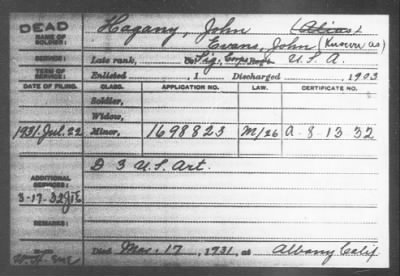 DEAD Hagany, John (Alias)
NAME OF SOLDIER: Evans, John (Known as)
SERVICE: Late rank, Sig. Corps U.S.A.
TERM OF SERVICE: Enlisted , 1 Discharged , 1903
DATE OF FILING. CLASS. APPLICATION NO. LAW. CERTIFICATE NO.
Soldier,
Widow,
1931 Jul. 22 Minor, 1698823 M/26 A-8-13-32
D 3 U.S. Art.
ADDITIONAL SERVICES:
3-17-32
REMARKS:
Died Mar. 17, 1931, at Albany Calif